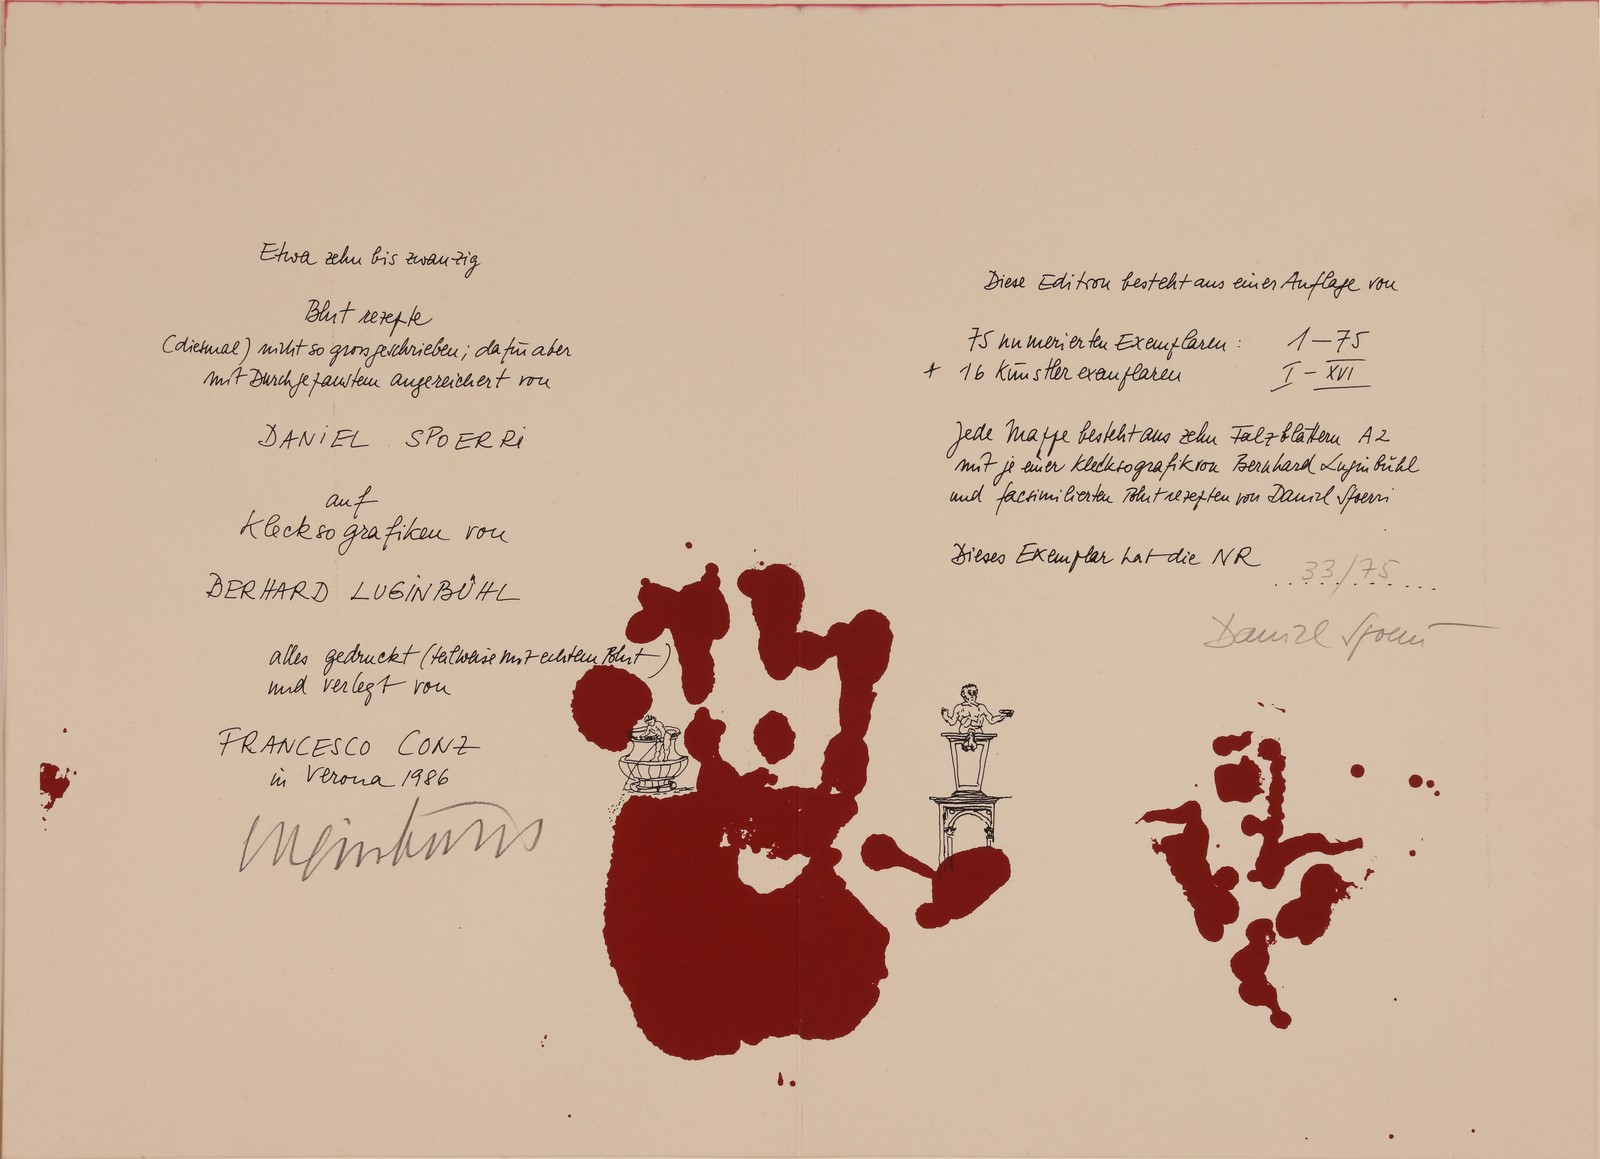 Etwa zehn bis zwanzig
Blut rezepte
(diesmal) nicht so grossgeschrieben; dafür aber
mit Durchgepaustem angereichert von
DANIEL SPOERRI
auf
Klecksografiken von
BERHARD LUGINBÜHL
alles gedruckt (teilweise mit echtem Blut)
und verlegt von
FRANCESCO CONZ
in Verona 1986
Luginbühl
Diese Edition besteht aus einer Auflage von
75 numerierten Exemplaren: 1-75
+ 16 Künstlerexemplaren I-XVI
Jede Mappe besteht aus zehn Falzblättern A2
mit je einer Klecksografik von Bernhard Luginbühl
und facsimilierten Blutrezepten von Daniel Spoerri
Dieses Exemplar hat die NR 33/75
Daniel Spoerri